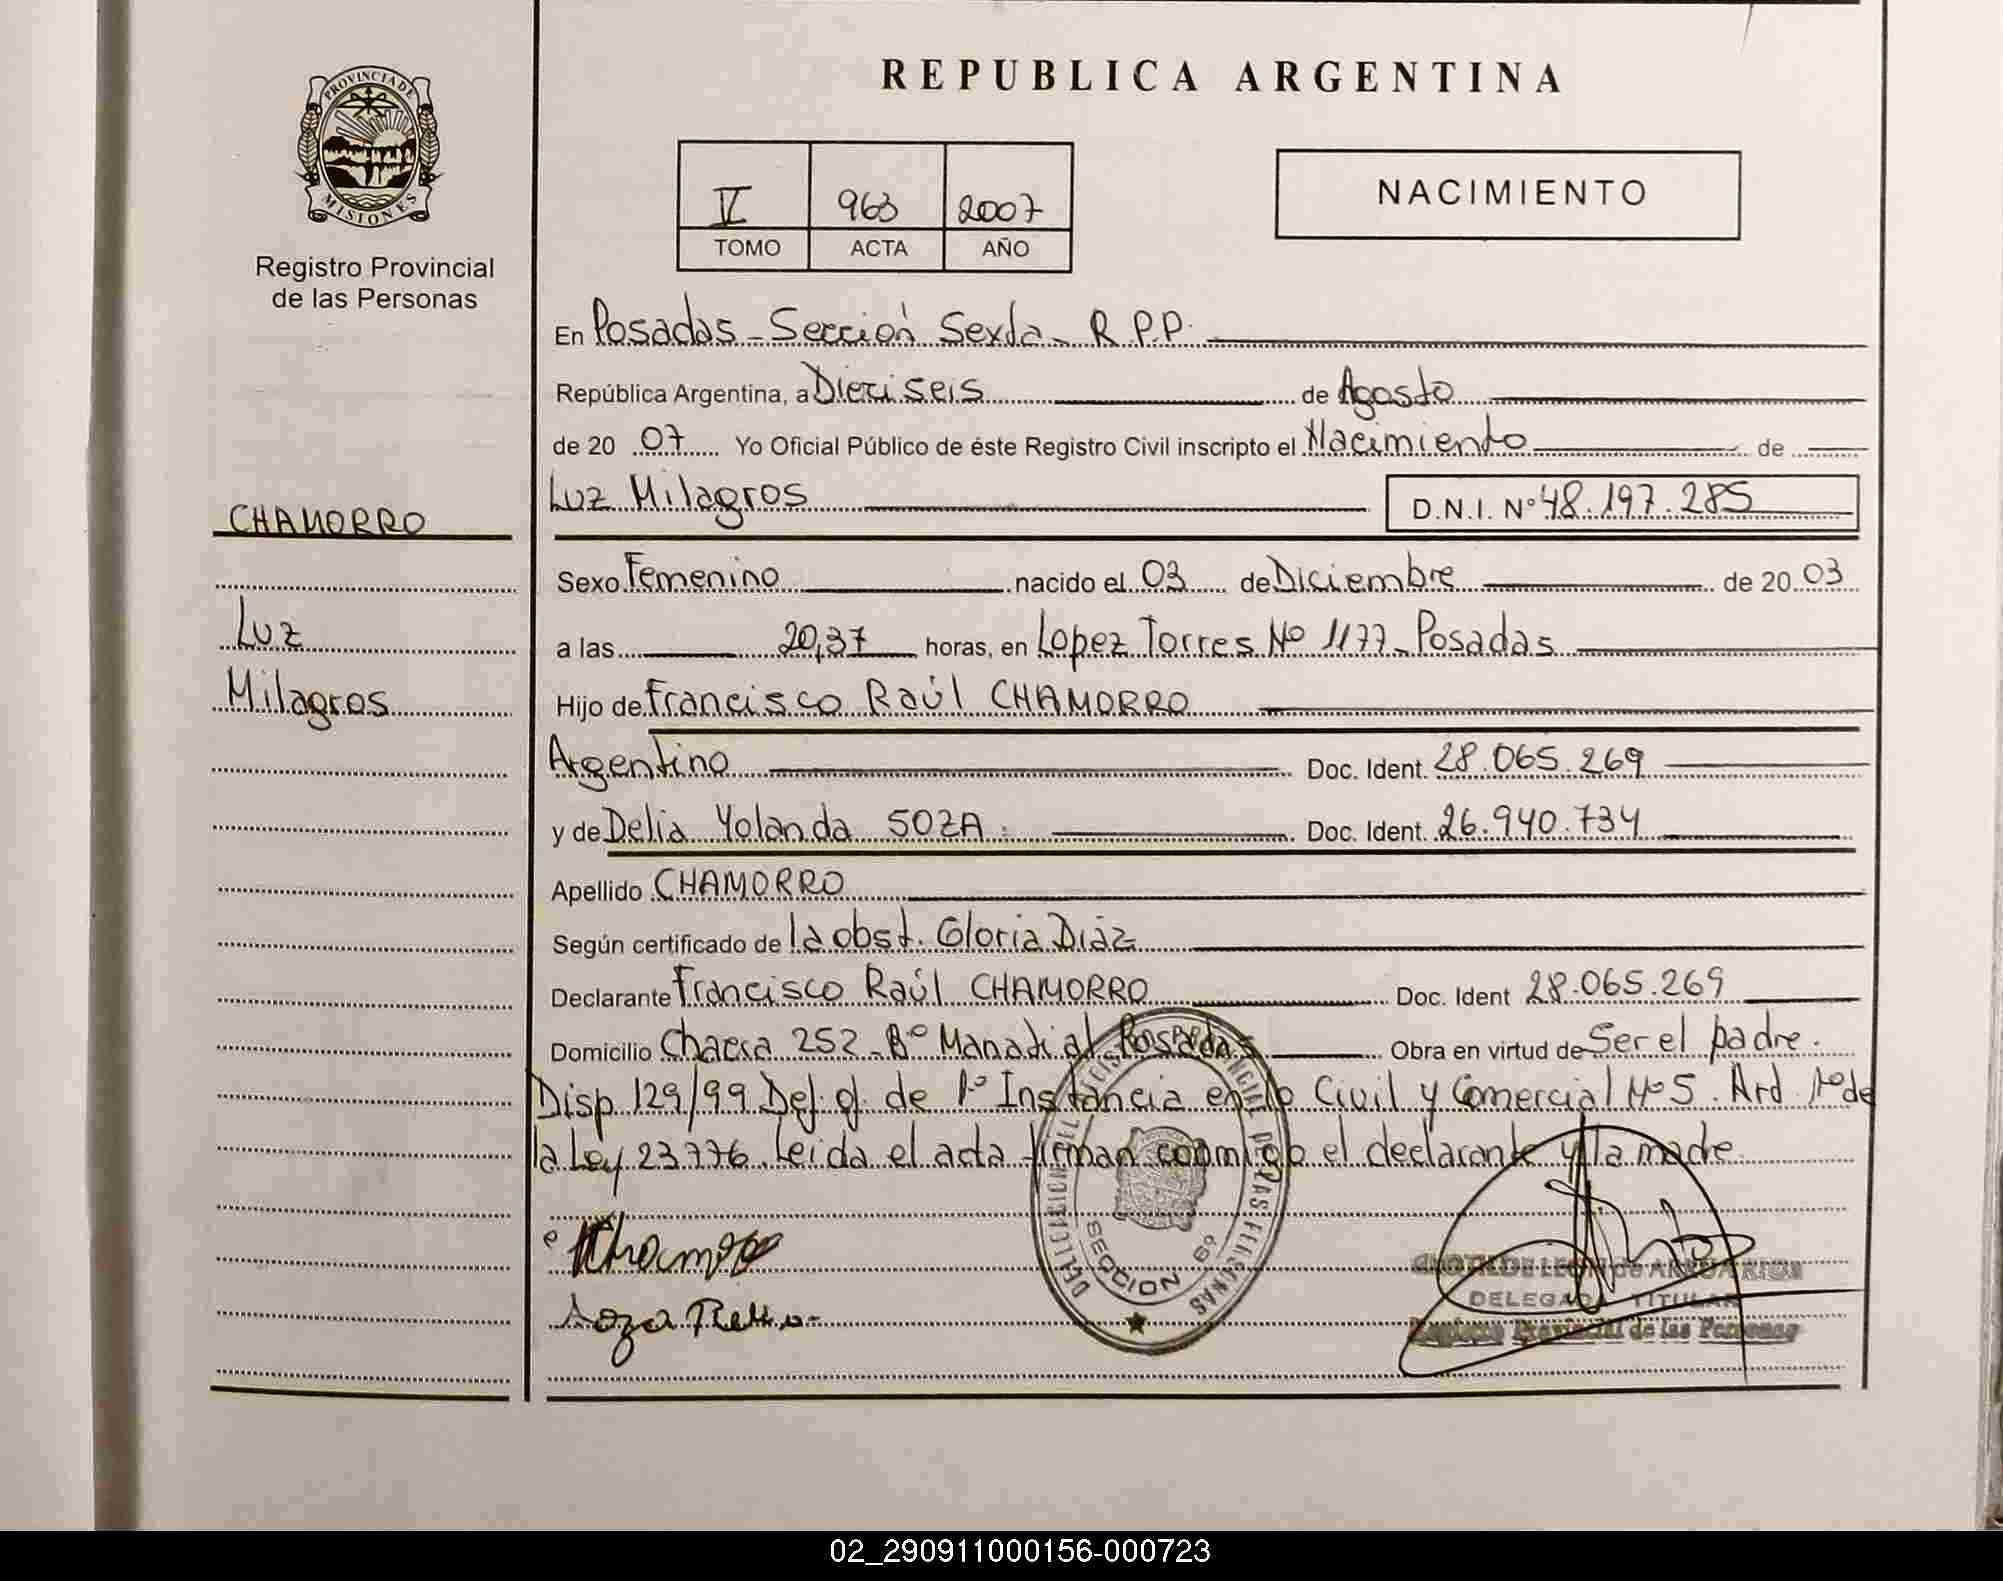 REPUBLICA ARGENTINA
PROVINCIA DE
MISIONES
Registro Provincial
de las Personas
963 2007
TOMO ACTA AÑO
NACIMIENTO
En Posadas - Sección Sexta - R.P.P.
República Argentina, a Dieciseis de Agosto
de 20 07 Yo Oficial Público de éste Registro Civil inscripto el Nacimiento de
Luz Milagros D.N.I. Nº 48.197.285
CHAMORRO
Luz
Milagros
Sexo Femenino nacido el 03 de Diciembre de 20 03
a las 20,37 horas, en Lopez Torres Nº 1177 - Posadas
Hijo de Francisco Raúl CHAMORRO
Argentino Doc. Ident. 28.065.269
y de Delia Yolanda SOZA Doc. Ident. 26.940.734
Apellido CHAMORRO
Según certificado de la obst. Gloria Diáz
Declarante Francisco Raúl CHAMORRO Doc. Ident 28.065.269
Domicilio Chacra 252 - Bº Manantial - Posadas Obra en virtud de Ser el padre.
Disp 129/99 Def. of. de 1º Instancia en lo Civil y Comercial Nº 5. Ard 1º de
la Ley 23.776. Leida el acta firman conmigo el declarante y la madre
Chamorro
Soza
SECCION 6º
DELEGADA TITULAR
Registro Provincial de las Personas
02_290911000156-000723